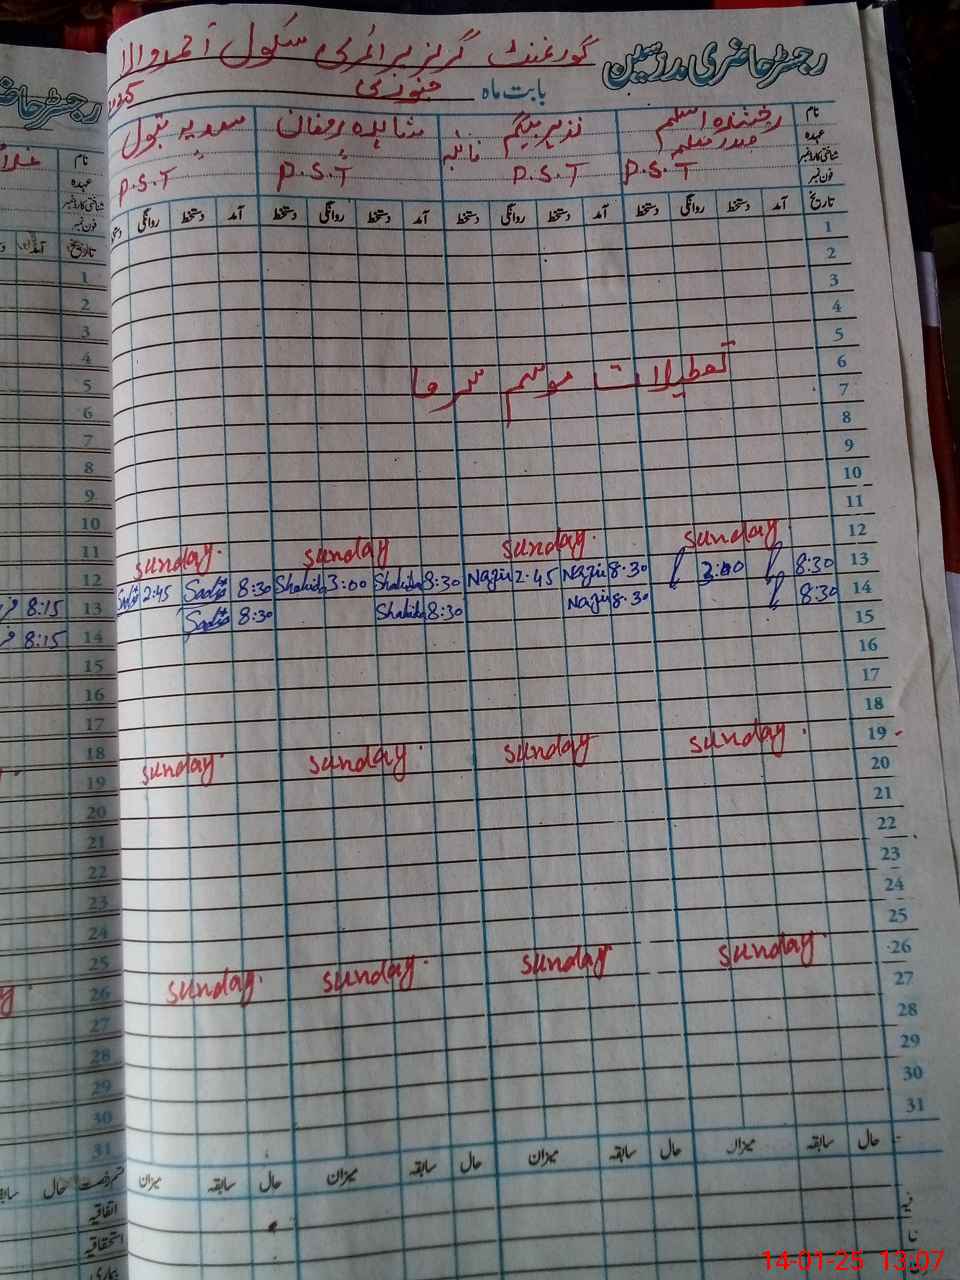 رجسٹر حاضری مدرسین
گورنمنٹ گرلز پرائمری سکول احمد والا
بابت ماہ جنوری
نام رخشندہ اسلم نذیر بیگم شاہدہ رمضان سعدیہ بتول
عہدہ صدر معلمہ نائلہ
شناختی کارڈ نمبر P.S.T P.S.T P.S.T P.S.T
فون نمبر
تاریخ آمد دستخط روانگی دستخط آمد دستخط روانگی دستخط آمد دستخط روانگی دستخط آمد دستخط روانگی
1
2
3
4
5
6
تعطیلات موسم سرما
7
8
9
10
11
12 sunday. sunday. sunday sunday.
13 8:30 3:00 8.30 Nazir 2.45 Nazir 8:30 Shahida 3:00 Shahida 8:30 Sadia 2:45 Sadia
14 8:30 8.30 Nazir 8:30 Shahida 8:30 Sadia
15
16
17
18
19 sunday. sunday sunday. sunday.
20
21
22
23
24
25
26 sunday. sunday sunday. sunday.
27
28
29
30
31
حال سابقہ میزان حال سابقہ میزان حال سابقہ میزان حال سابقہ میزان
رجسٹر حاضری
نام
عہدہ
شناختی کارڈ نمبر
فون نمبر
تاریخ آمد
1
2
3
4
5
6
7
8
9
10
11
12
13 8:15
14 8:15
15
16
17
18
19
20
21
22
23
24
25
26
27
28
29
30
31
قسم رخصت حال
اتفاقیہ
استحقاقیہ
بیماری
14-01-25 13:07